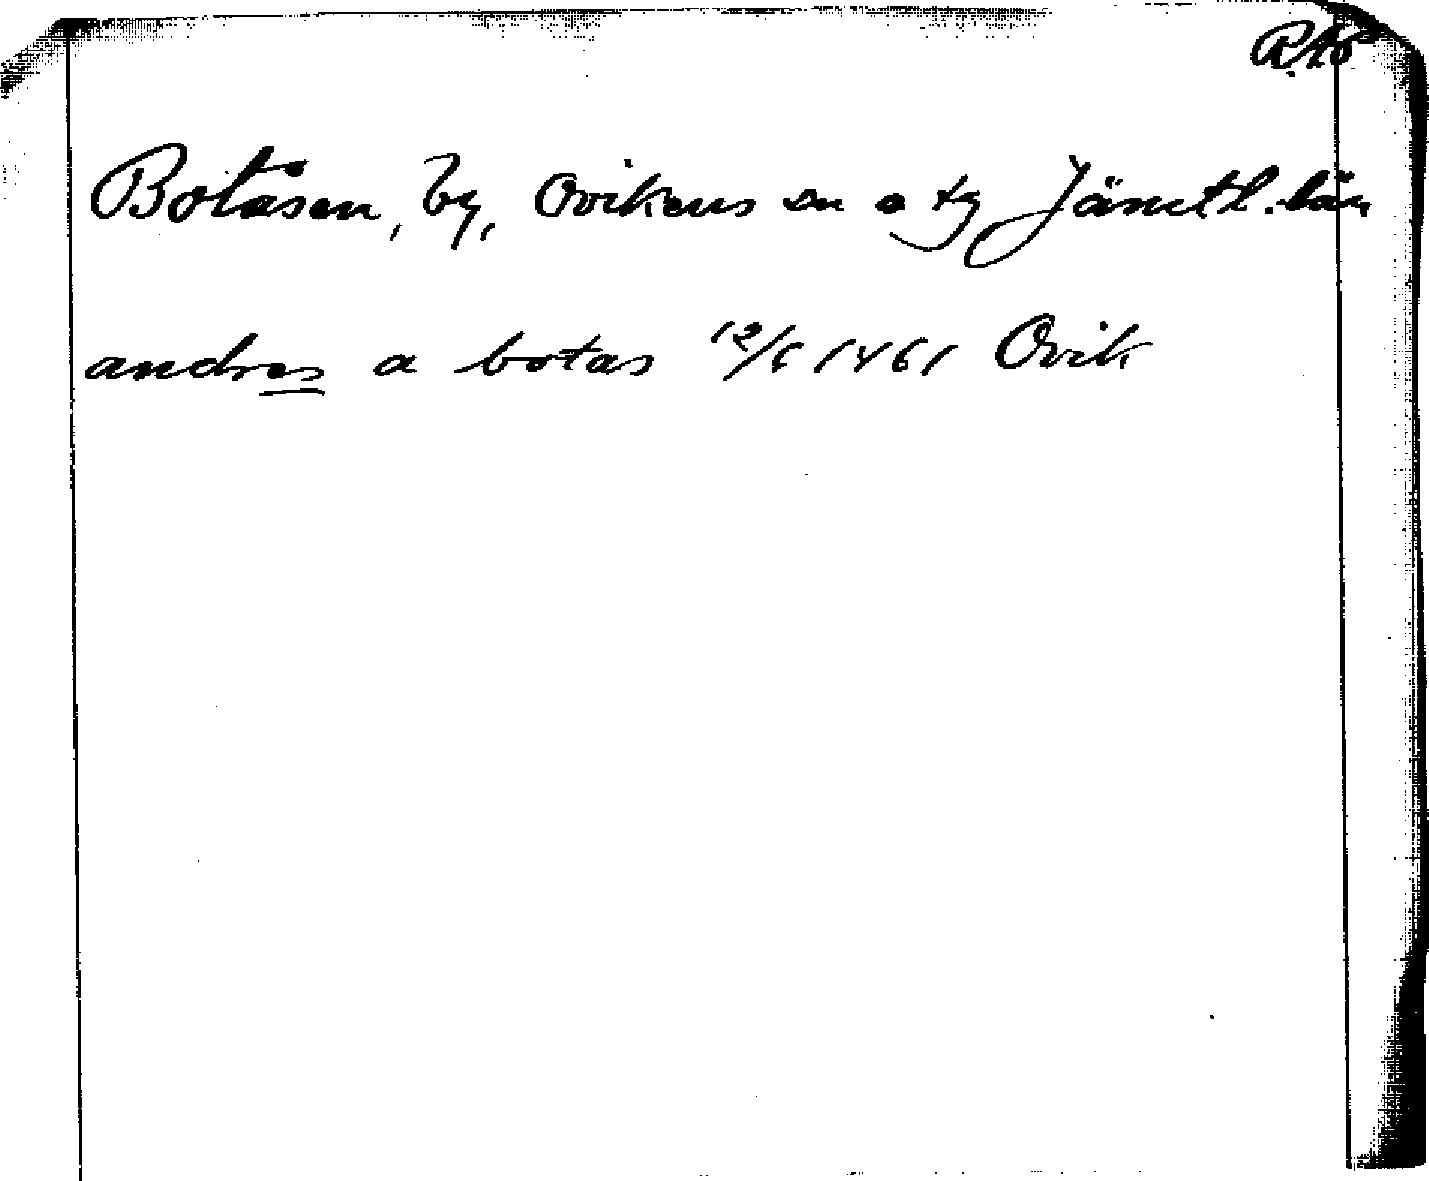 R.Ao
Botåsen, by, Ovikens sn o tg Jämtl. län
andres a botas 12/6 1461 Ovik